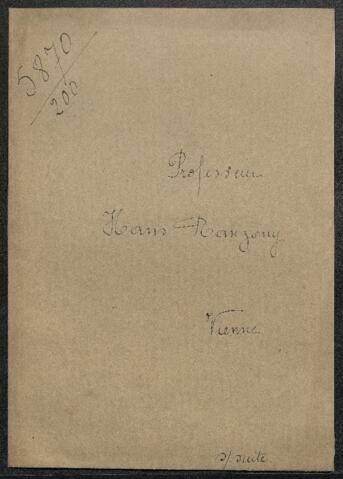 5870
200
Professeur
Hans Ranzony
Vienne
s/ suite